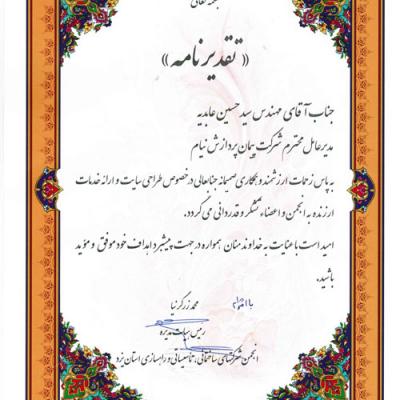 « تقدیرنامه »
جناب آقای مهندس سید حسین عابدیه
مدیرعامل محترم شرکت پیمان پردازش نیام
به پاس زحمات ارزشمند و همکاری صمیمانه جنابعالی در خصوص طراحی سایت و ارائه خدمات
ارزنده به انجمن و اعضاء، تشکر و قدردانی می گردد.
امید است با عنایت به خداوند منان همواره در جهت پیشبرد اهداف خود موفق و مؤید
باشید.
محمد زرگرنیا
رئیس هیات مدیره
انجمن شرکتهای ساختمانی، تأسیساتی و راهسازی استان یزد